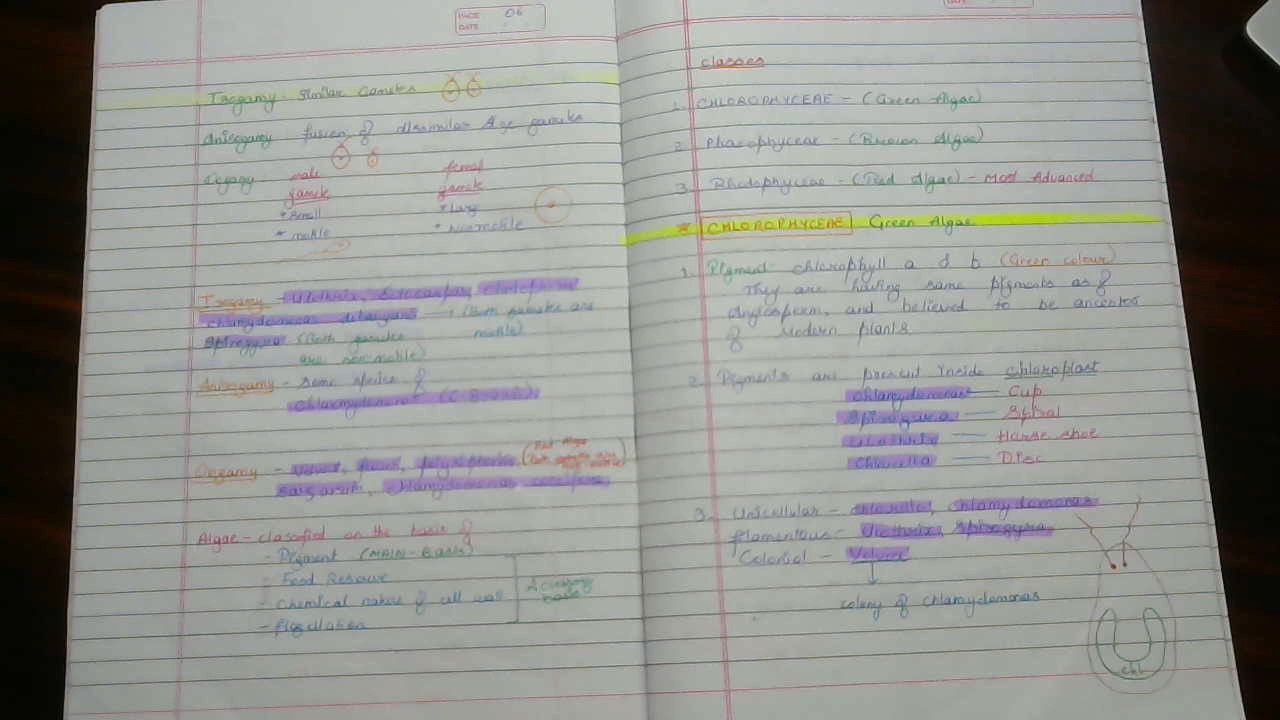 PAGE 06
DATE
Isogamy - Similar Gametes
Anisogamy fusion of dissimilar size gametes
Oogamy - male female
gamete gamete
* Small * Large
* motile * Non motile
Isogamy - Ulothrix, Ectocarpus, Cladophora
Chlamydomonas debaryana → (Both gametes are
Spirogyra (Both gametes motile)
are non motile)
Anisogamy - Some species of
Chlamydomonas
Oogamy - Volvox, fucus, polysiphonia (Red Algae
Sargassum, Chlamydomonas
Algae - classified on the basis of
- Pigment (MAIN-Basis)
- Food Reserve
- Chemical nature of cell wall
- flagellation
Accessory
basis
Classes
1. CHLOROPHYCEAE - (Green Algae)
2. Phaeophyceae - (Brown Algae)
3. Rhodophyceae - (Red Algae) - Most Advanced
* CHLOROPHYCEAE Green Algae
1. Pigment: chlorophyll a & b (Green colour)
They are having same pigments as of
Angiosperm, and believed to be ancestor
of Modern plants.
2. Pigments are present inside chloroplast
Chlamydomonas — Cup
Spirogyra — Spiral
Ulothrix — Horse shoe
Chlorella — Disc
3. Unicellular - Chlorella, Chlamydomonas
filamentous - Ulothrix, Spirogyra
Colonial - Volvox
colony of chlamydomonas
chl